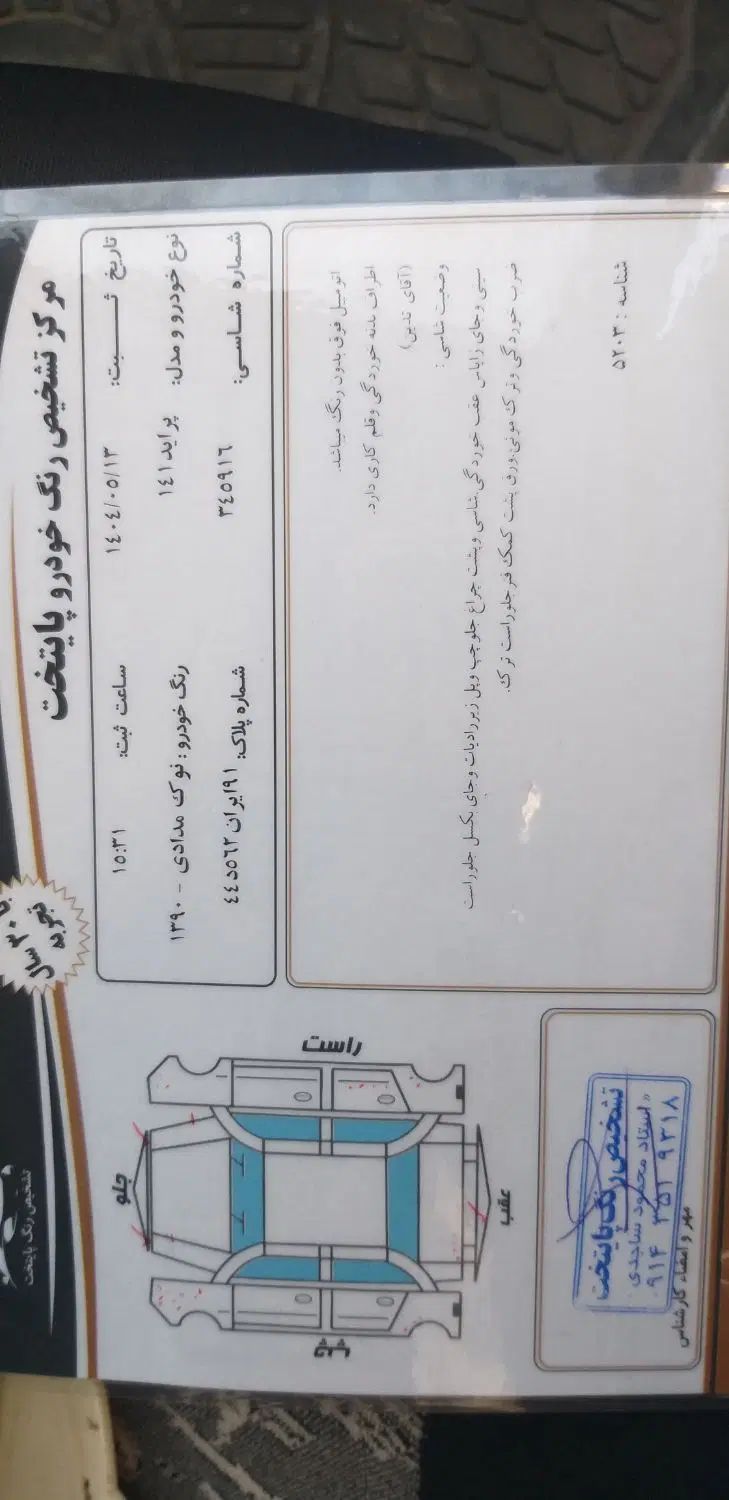 مرکز تشخیص رنگ خودرو پایتخت
۳۰ سال
تجربه
تشخیص رنگ پایتخت
تاریخ ثبت: ۱۴۰۴/۰۵/۱۳ ساعت ثبت: ۱۵:۳۱
نوع خودرو و مدل: پراید ۱۴۱ رنگ خودرو: نوک مدادی - ۱۳۹۰
شماره شاسی: ۳۴۵۹۱۶ شماره پلاک: ۹۱ایران۵۶۲د۴۴
اتومبیل فوق بدون رنگ میباشد.
اطراف بدنه خوردگی وقلم کاری دارد.
(آقای تدین)
وضعیت شاسی :
سینی وجای زاپاس عقب خوردگی.شاسی وپشت چراغ جلوچپ وپل زیررادیات وجای بکسل جلوراست
ضرب خوردگی وترک مویی.ورق پشت کمک فنرجلوراست ترک.
شناسه : ۵۲۰۳
راست
جلو
عقب
چپ
تشخیص رنگ پایتخت
استاد محمود ساجدی
۰۹۱۴ ۳۵۱ ۹۳۱۸
مهر و امضاء کارشناس